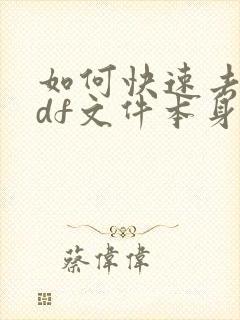 如何快速去
df文件本身
蔡偉偉